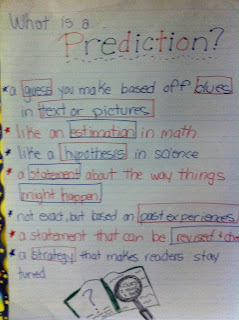 What is a
Prediction?
* a guess you make based off clues
in text or pictures
* like an estimation in math
* like a hypothesis in science
* a statement about the way things
might happen
* not exact, but based on past experiences
* a statement that can be revised +
* a strategy that makes readers stay
tuned
?